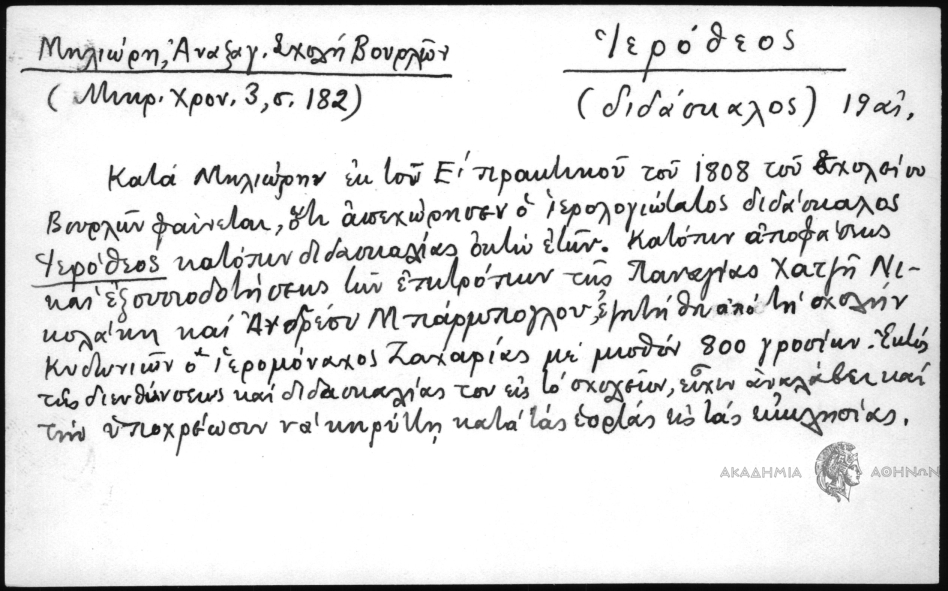 Μηλιώρη, Ἀναξαγ. Σχολή Βουρλῶν
(Μικρ. Χρον. 3, σ. 182)
Ἱερόθεος
(διδάσκαλος) 19 αἰ.
Κατά Μηλιώρην ἐκ τοῦ Ε΄ πρακτικοῦ τοῦ 1808 τοῦ Σχολείου
Βουρλῶν φαίνεται, ὅτι ἀπεχώρησεν ὁ ἱερολογιώτατος διδάσκαλος
Ἱερόθεος κατόπιν διδασκαλίας ὀκτώ ἐτῶν. Κατόπιν ἀποφάσεως
καί ἐξουσιοδοτήσεως τῶν ἐπιτρόπων τῆς Παναγίας Χατζῆ Νι-
κολάκη καί Ἀνδρέου Μπάρμπογλου, ἐζητήθη ἀπό τή σχολήν
Κυδωνιῶν ὁ ἱερομόναχος Ζαχαρίας μέ μισθόν 800 γροσίων. Ἐκτός
τῆς διευθύνσεως καί διδασκαλίας του εἰς τό σχολεῖον, εἶχεν ἀναλάβει καί
τήν ὑποχρέωσιν νά κηρύττῃ κατά τάς ἑορτάς εἰς τάς ἐκκλησίας.
ΑΚΑΔΗΜΙΑ ΑΘΗΝΩΝ